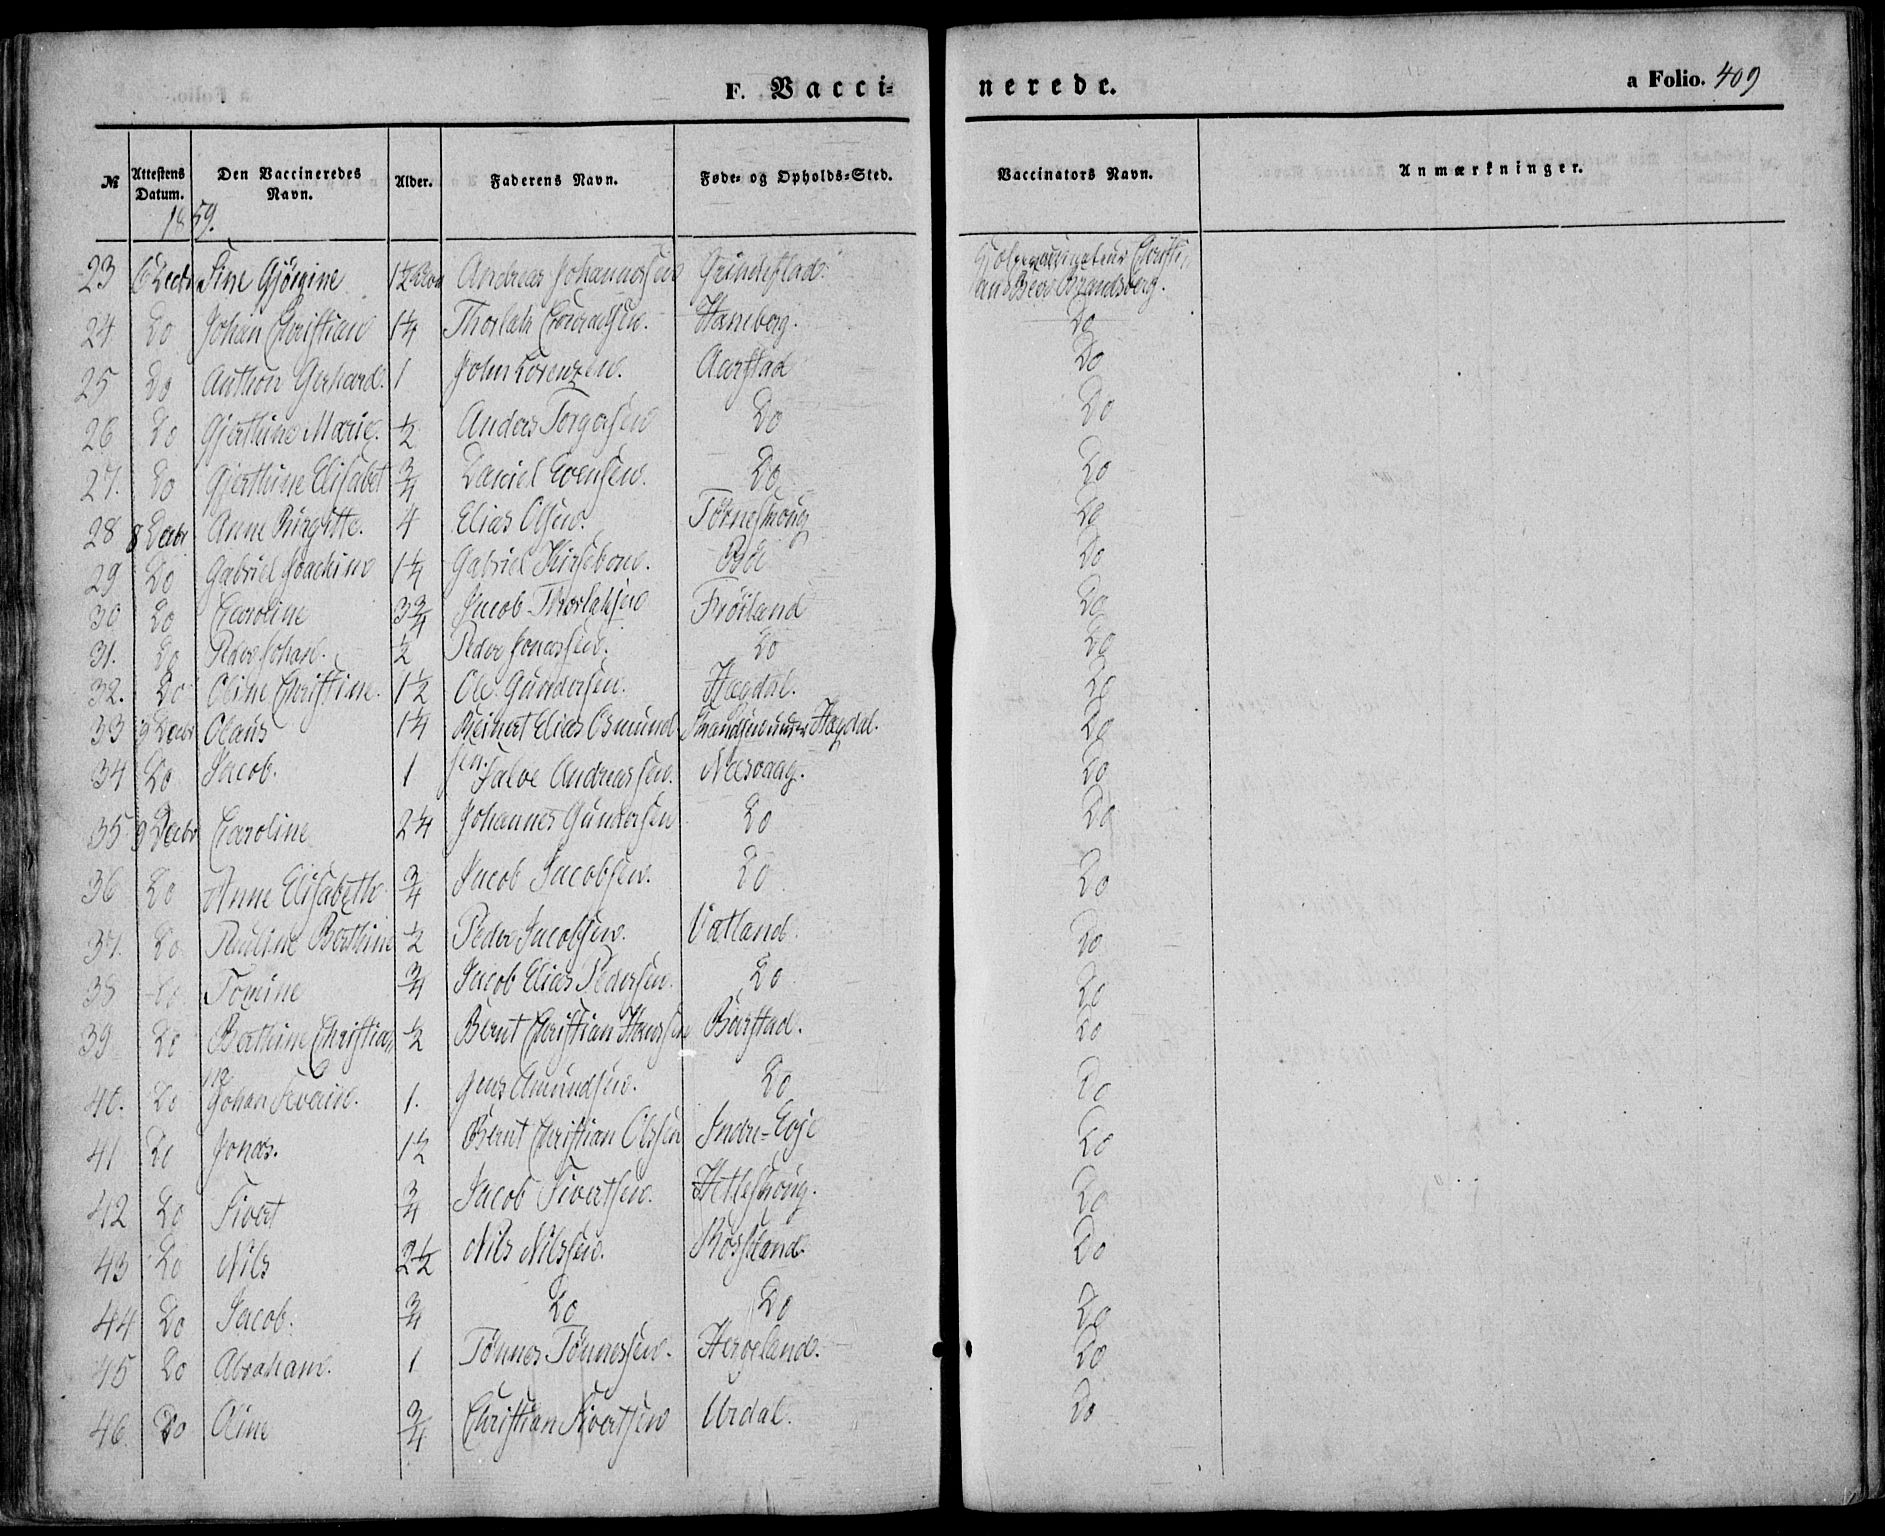 F. Vacci= nerede. a Folio. 409
№ Attestens Datum. Den Vaccineredes Navn. Alder. Faderens Navn. Føde- og Opholds-Sted. Vaccinators Navn. Anmærkninger.
1859.
23 6 Decbr Sine Gjørgine 1½ Andreas Johannessen
24 Do Johan Christian 1¼ Thorlak Conradsen. Haneberg. Do
25 Do Anthon Gerhard. 1 John Lorenzen. Aarstad Do
26 Do Gjerthine Marie. ½ Anders Torgersen Do Do
27. Do Gjerthine Elisabet ¾ Daniel Evensen. Do Do
28 8 Decbr. Anne Birgitte. 4 Elias Olsen. Do
29 Do Gabriel Joachim 1¼ Gabriel Kirsebom. Bøe Do
30 Do Caroline 3¾ Jacob Thorlaksen Frøiland Do
31. Do Peder Johan. ½ Peder Jonassen. Do Do
32. Do Oline Christine. 1½ Ole Gundersen. Hægdal. Do
33 9 Decbr Olaus 1¼ Reinert Elias Osmund Strandsen under Hægdal. Do
sen.
34 Do Jacob. 1 Salve Andreassen. Næsvaag. Do
35 9 Decbr Caroline 2¼ Johannes Gundersen Do Do
36 Do Anne Elisabeth. ¾ Jacob Jacobsen. Do Do
37. Do Pauline Berthine ½ Peder Jacobsen. Vatland. Do
38 Do Tomine ¾ Jacob Elias Pedersen. Do Do
39 Do Berthine Christia= ½ Bernt Christian Hanssen Barstad. Do
na
40. Do Johan Severin. 1. Jens Amundsen. Do Do
41 Do Jonas. 1½ Bernt Christian Olssen Indre=Eoje Do
42 Do Sivert ¾ Jacob Sivertsen. Do
43 Do Nils 2½ Nils Nilssen. Røssland. Do
44 Do Jacob. ¾ Do Do Do
45 Do Abraham. 1 Tønnes Tønnessen. Hegeland. Do
46 Do Oline ¾ Christian Sivertsen Urdal. Do